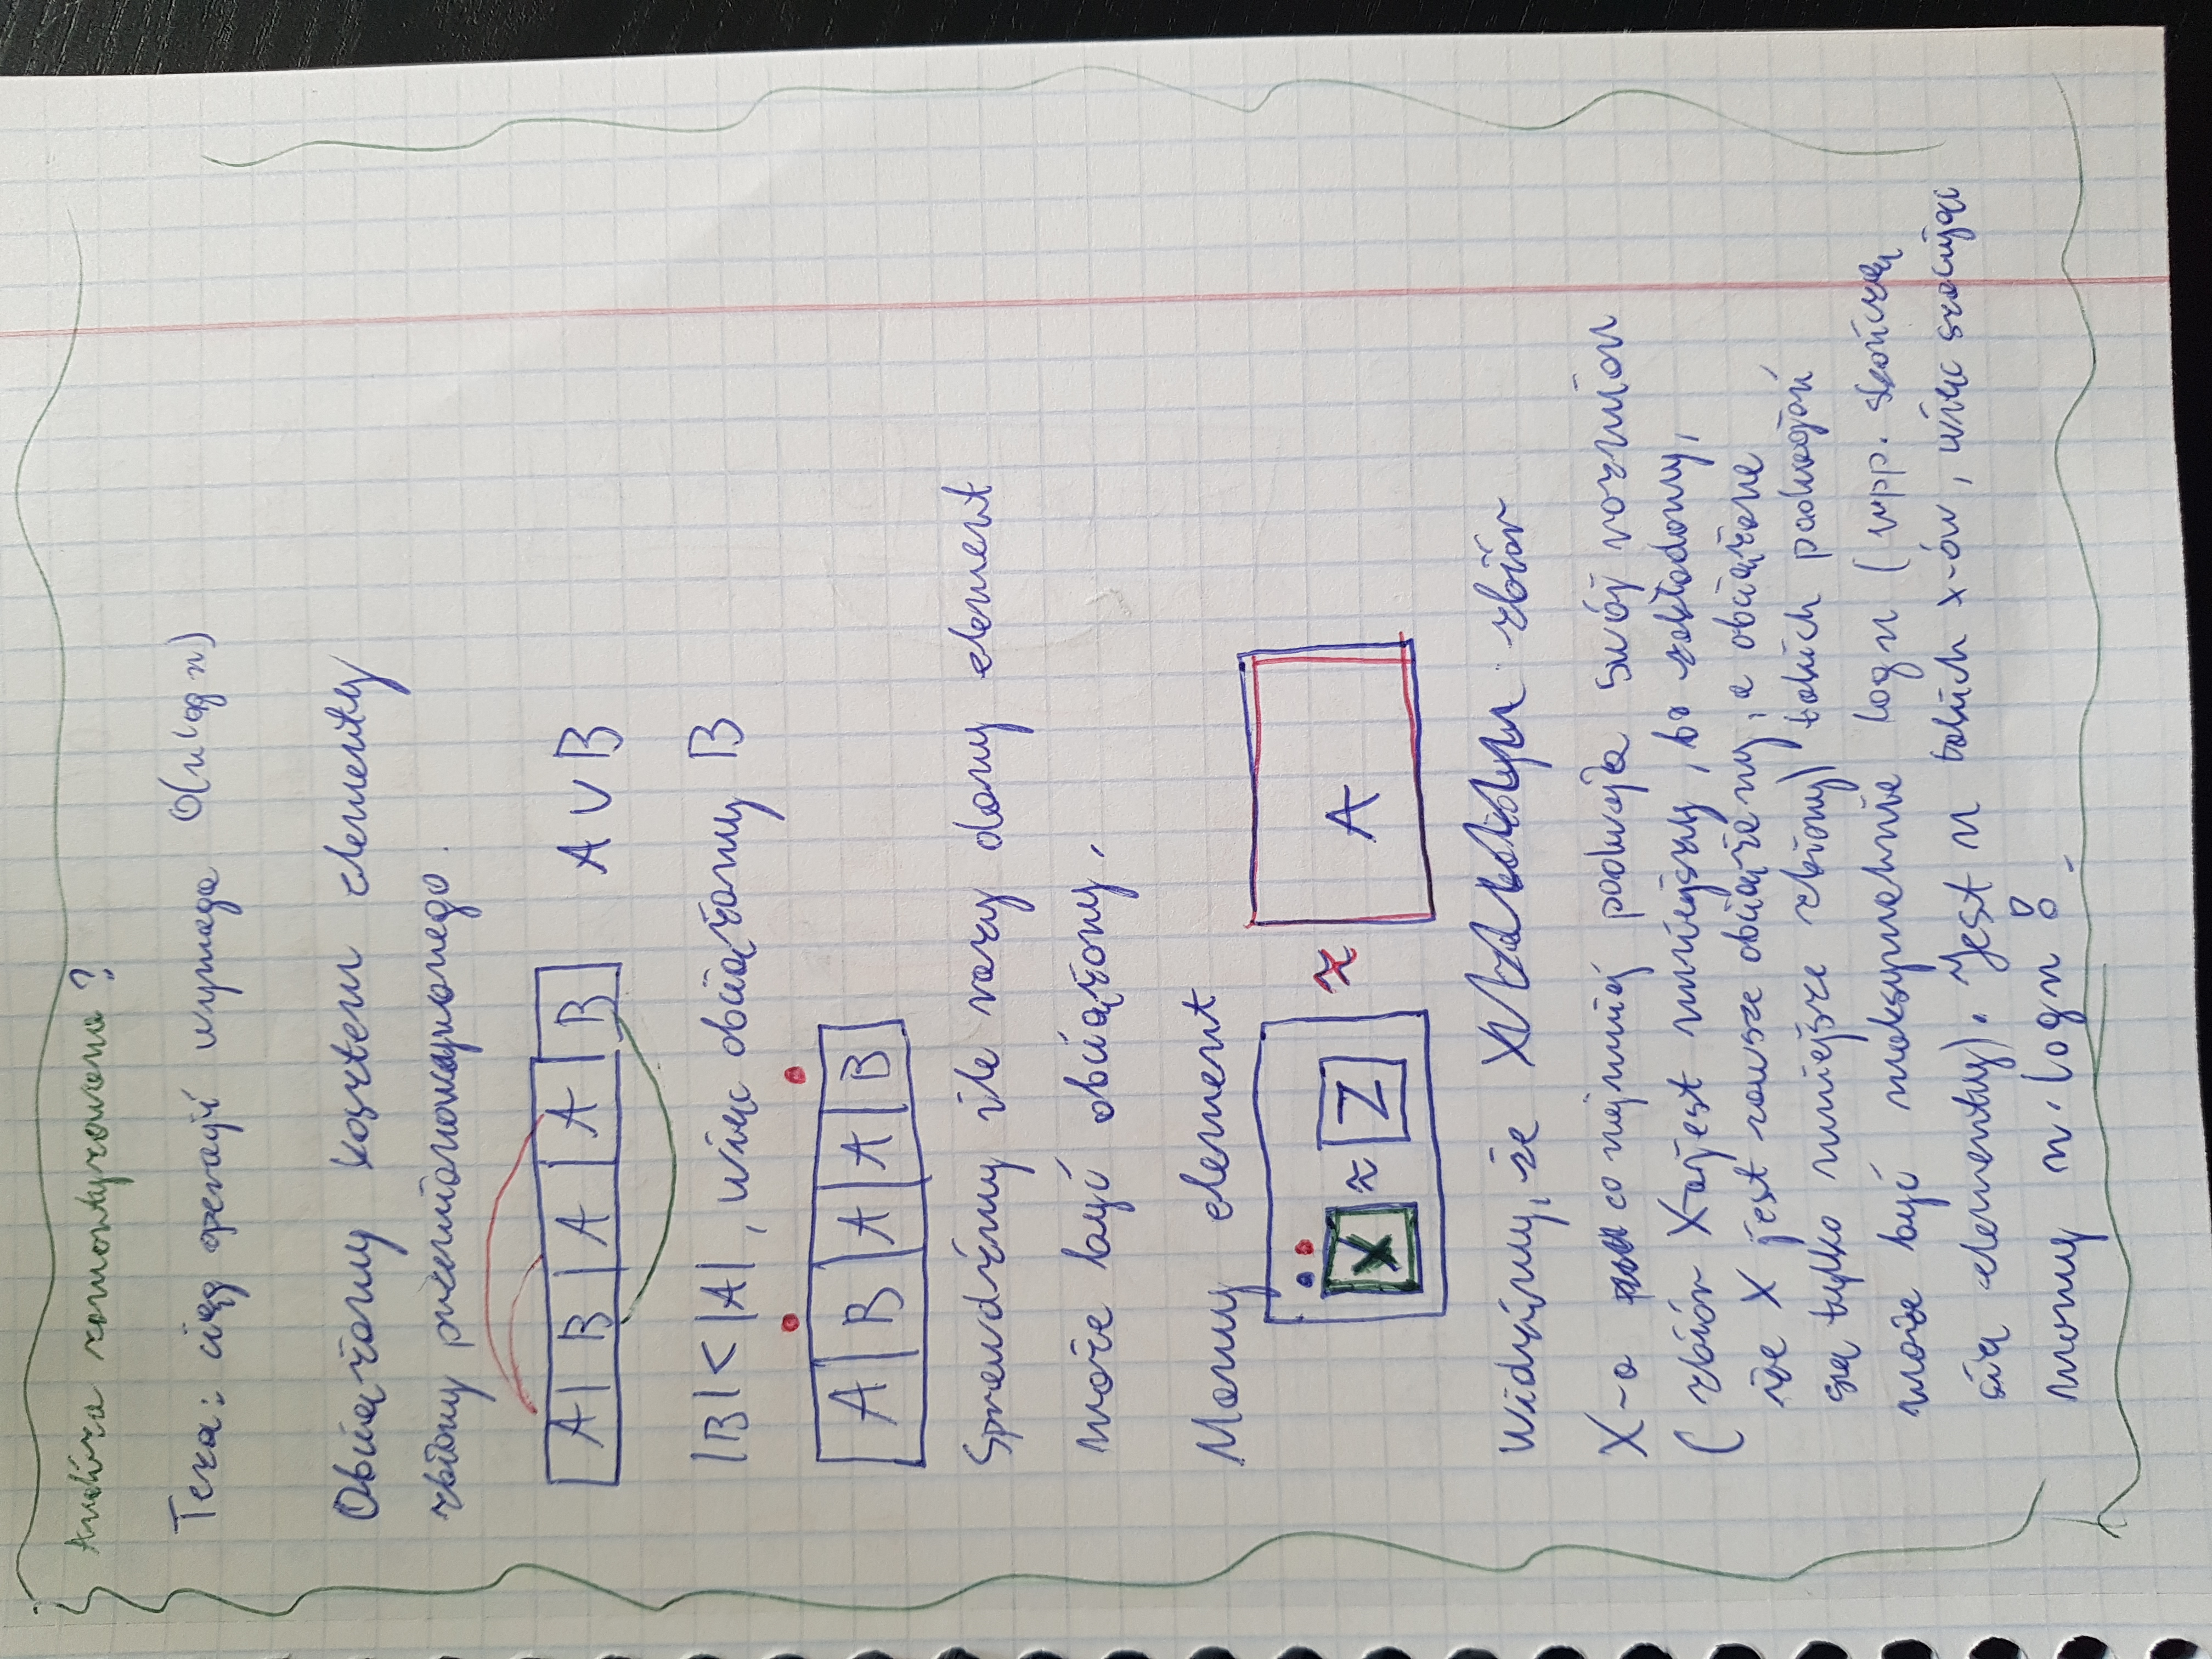 Analiza zamortyzowana?
Teza: ciąg operacji wymaga O(n log n)
Obciążamy kosztem elementy
zbioru przemianowywanego.
A B A A B A ∪ B
|B| < |A|, więc obciążamy B
A B A A B
Sprawdźmy ile razy dany element
może być obciążony.
Mamy element
X ≈ Z ≈ A
Widzimy, że zbiór
X-a co najmniej podwaja swój rozmiar
(zbiór X-a jest mniejszy, bo zakładamy,
że X jest zawsze obciążany, a obciążane
są tylko mniejsze zbiory) takich podwojeń
może być maksymalnie log n (wpp. skończą
się elementy). Jest n takich x-ów, więc szacując
mamy n · log n!